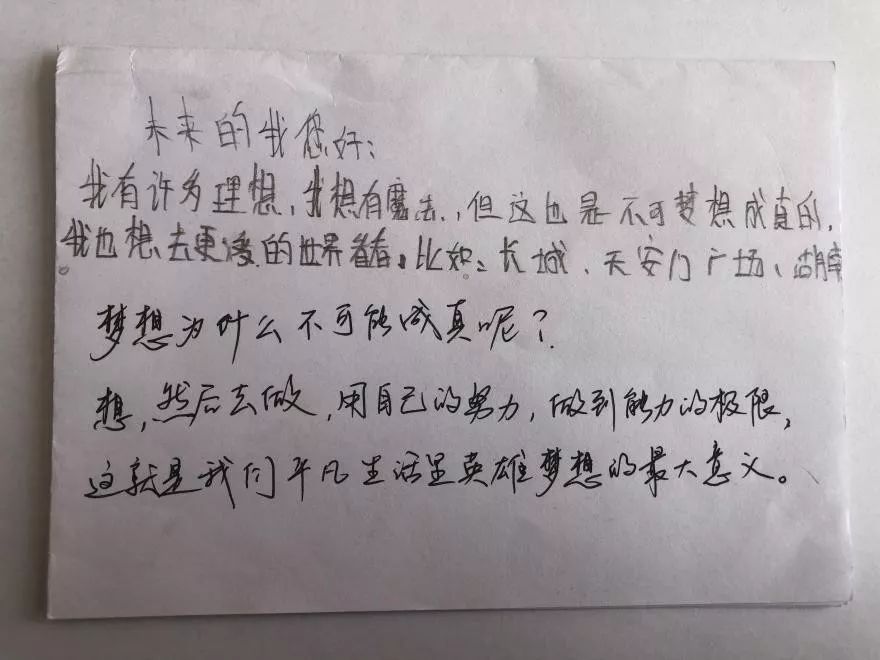 未来的我您好：
我有许多理想，我想有魔法，但这也是不可梦想成真的，
我也想去更漫的世界看看。比如：长城、天安门广场、湖南
。
梦想为什么不可能成真呢？
想，然后去做，用自己的努力，做到能力的极限，
这就是我们平凡生活里英雄梦想的最大意义。